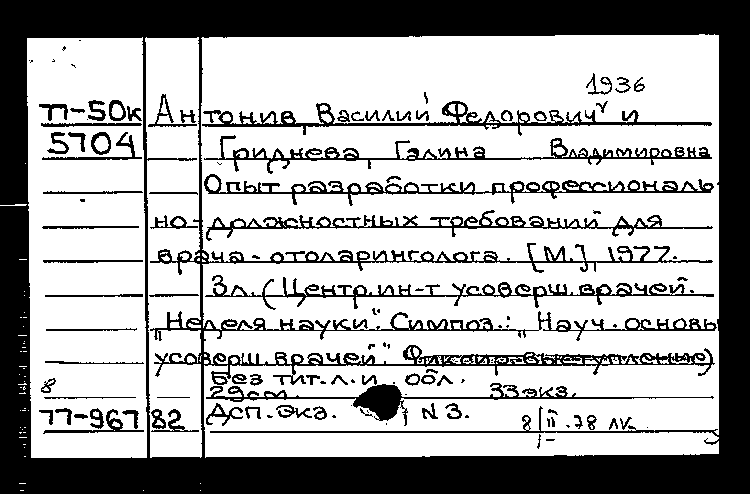 1936
77-50к Антонив, Василий Федорович и
5704 Гриднева, Галина Владимировна
Опыт разработки профессиональ-
но-должностных требований для
врача-отоларинголога. [М.], 1977.
3л. (Центр. ин-т усоверш. врачей.
"Неделя науки". Симпоз.: "Науч. основы
усоверш. врачей".
Без тит. л. и обл.
8 29см. 33экз.
77-967 82 Дсп. экз. N 3. 8/II.78